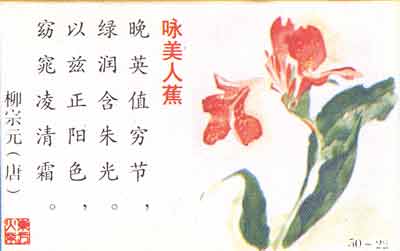 咏美人蕉
晚英值穷节，
绿润含朱光。
以兹正阳色，
窈窕凌清霜。
柳宗元（唐）
50-22